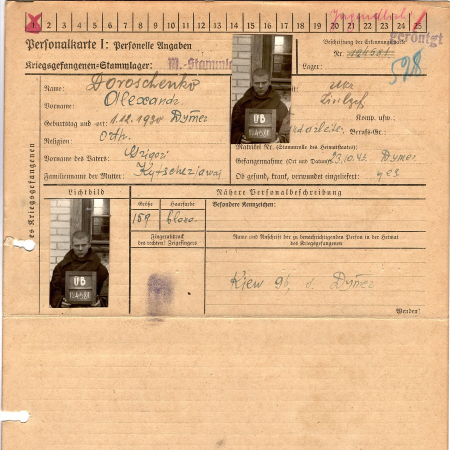 1 2 3 4 5 6 7 8 9 10 11 12 13 14 15 16 17 18 19 20 21 22 23 24 25
Jugendlich
Personalkarte I: Personelle Angaben
Beschriftung der Erkennungsmarke
Kriegsgefangenen-Stammlager: M.-Stammla
Nr.
Lager:
598
Name: Doroschenko
Vorname: Alexand
Ukr
Zivilist
Geburtstag und -ort: 1.12.1920 Dymer
Komp. usw.:
Religion: orth.
Berufs-Gr.:
Matrikel Nr. (Stammrolle des Heimatstaates):
Vorname des Vaters: Grigori
Gefangennahme (Ort und Datum): 23.10.43 Dymer
Familienname der Mutter:
Ob gesund, krank, verwundet eingeliefert: ges.
es Kriegsgefangenen
Lichtbild
Nähere Personalbeschreibung
Größe
Haarfarbe
Besondere Kennzeichen:
159
Fingerabdruck
des rechten! Zeigefingers
Name und Anschrift der zu benachrichtigenden Person in der Heimat
des Kriegsgefangenen
VB
Kiew
Dymer
Wenden!